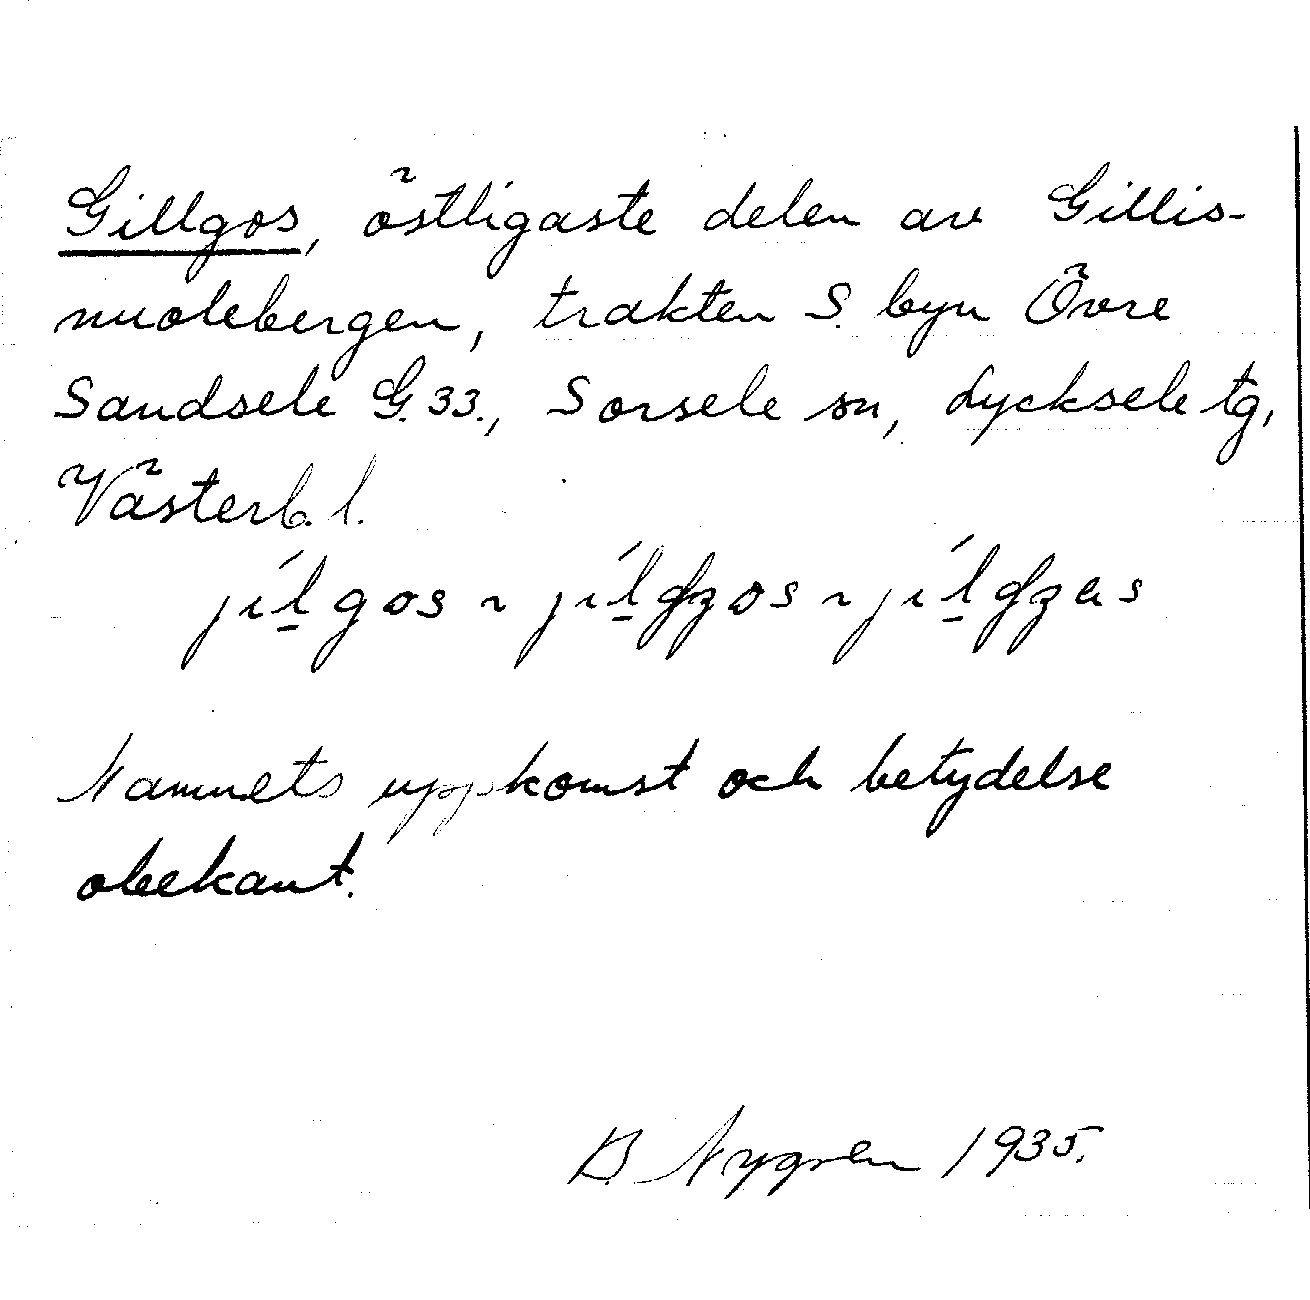 Gillgos, östligaste delen av Gillis-
nuolebergen, trakten S. byn Övre
Sandsele G. 33., Sorsele sn, Lycksele tg,
Västerb. l.
Namnets uppkomst och betydelse
obekant.
D. Nygren 1935.